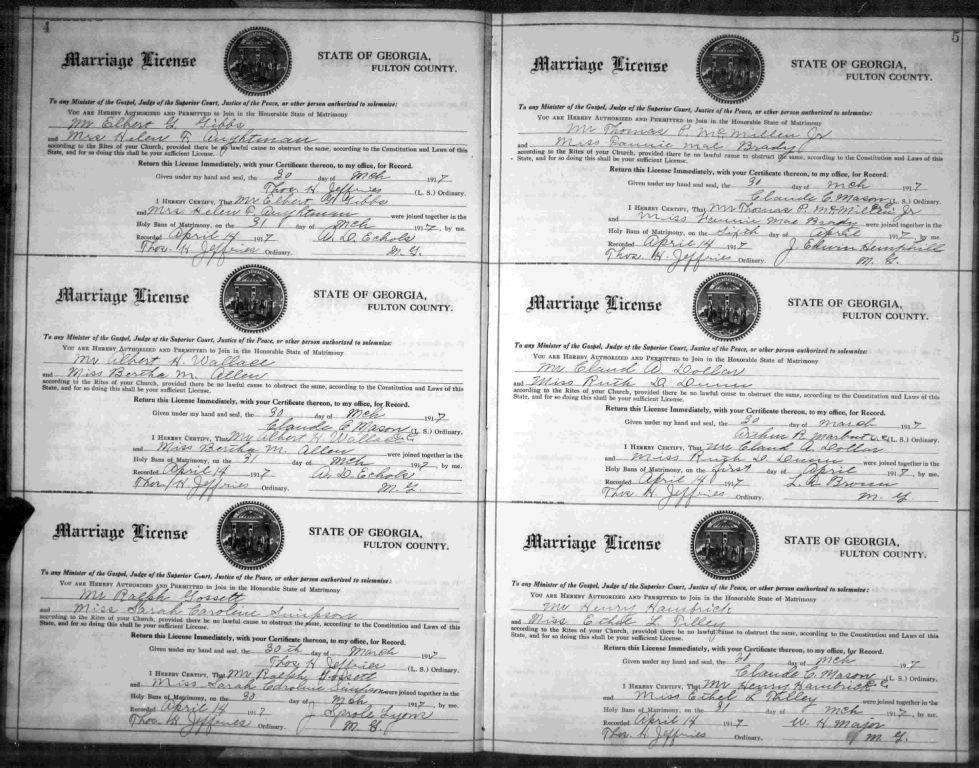 4
Marriage License
STATE OF GEORGIA,
FULTON COUNTY.
To any Minister of the Gospel, Judge of the Superior Court, Justice of the Peace, or other person authorized to solemnize:
YOU ARE HEREBY AUTHORIZED AND PERMITTED to Join in the Honorable State of Matrimony
Mr Elbert G. Gibbs
and Mrs Helen F. Wightman
according to the Rites of your Church, provided there be no lawful cause to obstruct the same, according to the Constitution and Laws of this
State, and for so doing this shall be your sufficient License.
Return this License Immediately, with your Certificate thereon, to my office, for Record.
Given under my hand and seal, the 30 day of Mch 1917
Thos. H. Jeffries (L. S.) Ordinary.
I HEREBY CERTIFY, That Mr Elbert G. Gibbs
and Mrs Helen F. Wightman were joined together in the
Holy Bans of Matrimony, on the 31 day of Mch 1917, by me.
Recorded April 14 1917 A. D. Echols
Thos. H. Jeffries Ordinary. M. G.
Marriage License
STATE OF GEORGIA,
FULTON COUNTY.
To any Minister of the Gospel, Judge of the Superior Court, Justice of the Peace, or other person authorized to solemnize:
YOU ARE HEREBY AUTHORIZED AND PERMITTED to Join in the Honorable State of Matrimony
Mr Albert H. Wallace
and Miss Bertha M. Allen
according to the Rites of your Church, provided there be no lawful cause to obstruct the same, according to the Constitution and Laws of this
State, and for so doing this shall be your sufficient License.
Return this License Immediately, with your Certificate thereon, to my office, for Record.
Given under my hand and seal, the 30 day of Mch 1917
Claude C. Mason C.C. (L. S.) Ordinary.
I HEREBY CERTIFY, That Mr Albert H. Wallace
and Miss Bertha M. Allen were joined together in the
Holy Bans of Matrimony, on the 31 day of Mch 1917, by me.
Recorded April 14 1917 A. D. Echols
Thos. H. Jeffries Ordinary. M. G.
Marriage License
STATE OF GEORGIA,
FULTON COUNTY.
To any Minister of the Gospel, Judge of the Superior Court, Justice of the Peace, or other person authorized to solemnize:
YOU ARE HEREBY AUTHORIZED AND PERMITTED to Join in the Honorable State of Matrimony
Mr Ralph Gossett
and Miss Sarah Caroline Simpson
according to the Rites of your Church, provided there be no lawful cause to obstruct the same, according to the Constitution and Laws of this
State, and for so doing this shall be your sufficient License.
Return this License Immediately, with your Certificate thereon, to my office, for Record.
Given under my hand and seal, the 30th day of March 1917
Thos. H. Jeffries (L. S.) Ordinary.
I HEREBY CERTIFY, That Mr Ralph Gossett
and Miss Sarah Caroline Simpson were joined together in the
Holy Bans of Matrimony, on the 30 day of Mch 1917, by me.
Recorded April 14 1917 J. Sprole Lyons
Thos. H. Jeffries Ordinary. M. G.
5
Marriage License
STATE OF GEORGIA,
FULTON COUNTY.
To any Minister of the Gospel, Judge of the Superior Court, Justice of the Peace, or other person authorized to solemnize:
YOU ARE HEREBY AUTHORIZED AND PERMITTED to Join in the Honorable State of Matrimony
Mr Thomas P. McMillen Jr
and Miss Fannie Mae Brady
according to the Rites of your Church, provided there be no lawful cause to obstruct the same, according to the Constitution and Laws of this
State, and for so doing this shall be your sufficient License.
Return this License Immediately, with your Certificate thereon, to my office, for Record.
Given under my hand and seal, the 30 day of Mch 1917
Claude C. Mason C.C. (L. S.) Ordinary.
I HEREBY CERTIFY, That Mr Thomas P. McMillen Jr
and Miss Fannie Mae Brady were joined together in the
Holy Bans of Matrimony, on the Fifth day of April 1917, by me.
Recorded April 14 1917 J. Edwin Hemphill
Thos. H. Jeffries Ordinary. M. G.
Marriage License
STATE OF GEORGIA,
FULTON COUNTY.
To any Minister of the Gospel, Judge of the Superior Court, Justice of the Peace, or other person authorized to solemnize:
YOU ARE HEREBY AUTHORIZED AND PERMITTED to Join in the Honorable State of Matrimony
Mr Claud A. Dollar
and Miss Ruth D. Dunn
according to the Rites of your Church, provided there be no lawful cause to obstruct the same, according to the Constitution and Laws of this
State, and for so doing this shall be your sufficient License.
Return this License Immediately, with your Certificate thereon, to my office, for Record.
Given under my hand and seal, the 30 day of March 1917
Arthur R. Marbut C.C. (L. S.) Ordinary.
I HEREBY CERTIFY, That Mr Claud A. Dollar
and Miss Ruth D. Dunn were joined together in the
Holy Bans of Matrimony, on the first day of April 1917, by me.
Recorded April 14 1917 L. A. Brown
Thos. H. Jeffries Ordinary. M. G.
Marriage License
STATE OF GEORGIA,
FULTON COUNTY.
To any Minister of the Gospel, Judge of the Superior Court, Justice of the Peace, or other person authorized to solemnize:
YOU ARE HEREBY AUTHORIZED AND PERMITTED to Join in the Honorable State of Matrimony
Mr Henry Hambrick
and Miss Ethel L. Tilley
according to the Rites of your Church, provided there be no lawful cause to obstruct the same, according to the Constitution and Laws of this
State, and for so doing this shall be your sufficient License.
Return this License Immediately, with your Certificate thereon, to my office, for Record.
Given under my hand and seal, the 31 day of Mch 1917
Claude C. Mason C.C. (L. S.) Ordinary.
I HEREBY CERTIFY, That Mr Henry Hambrick
and Miss Ethel L. Tilley were joined together in the
Holy Bans of Matrimony, on the 31 day of Mch 1917, by me.
Recorded April 14 1917 W. H. Major
Thos. H. Jeffries Ordinary. M. G.